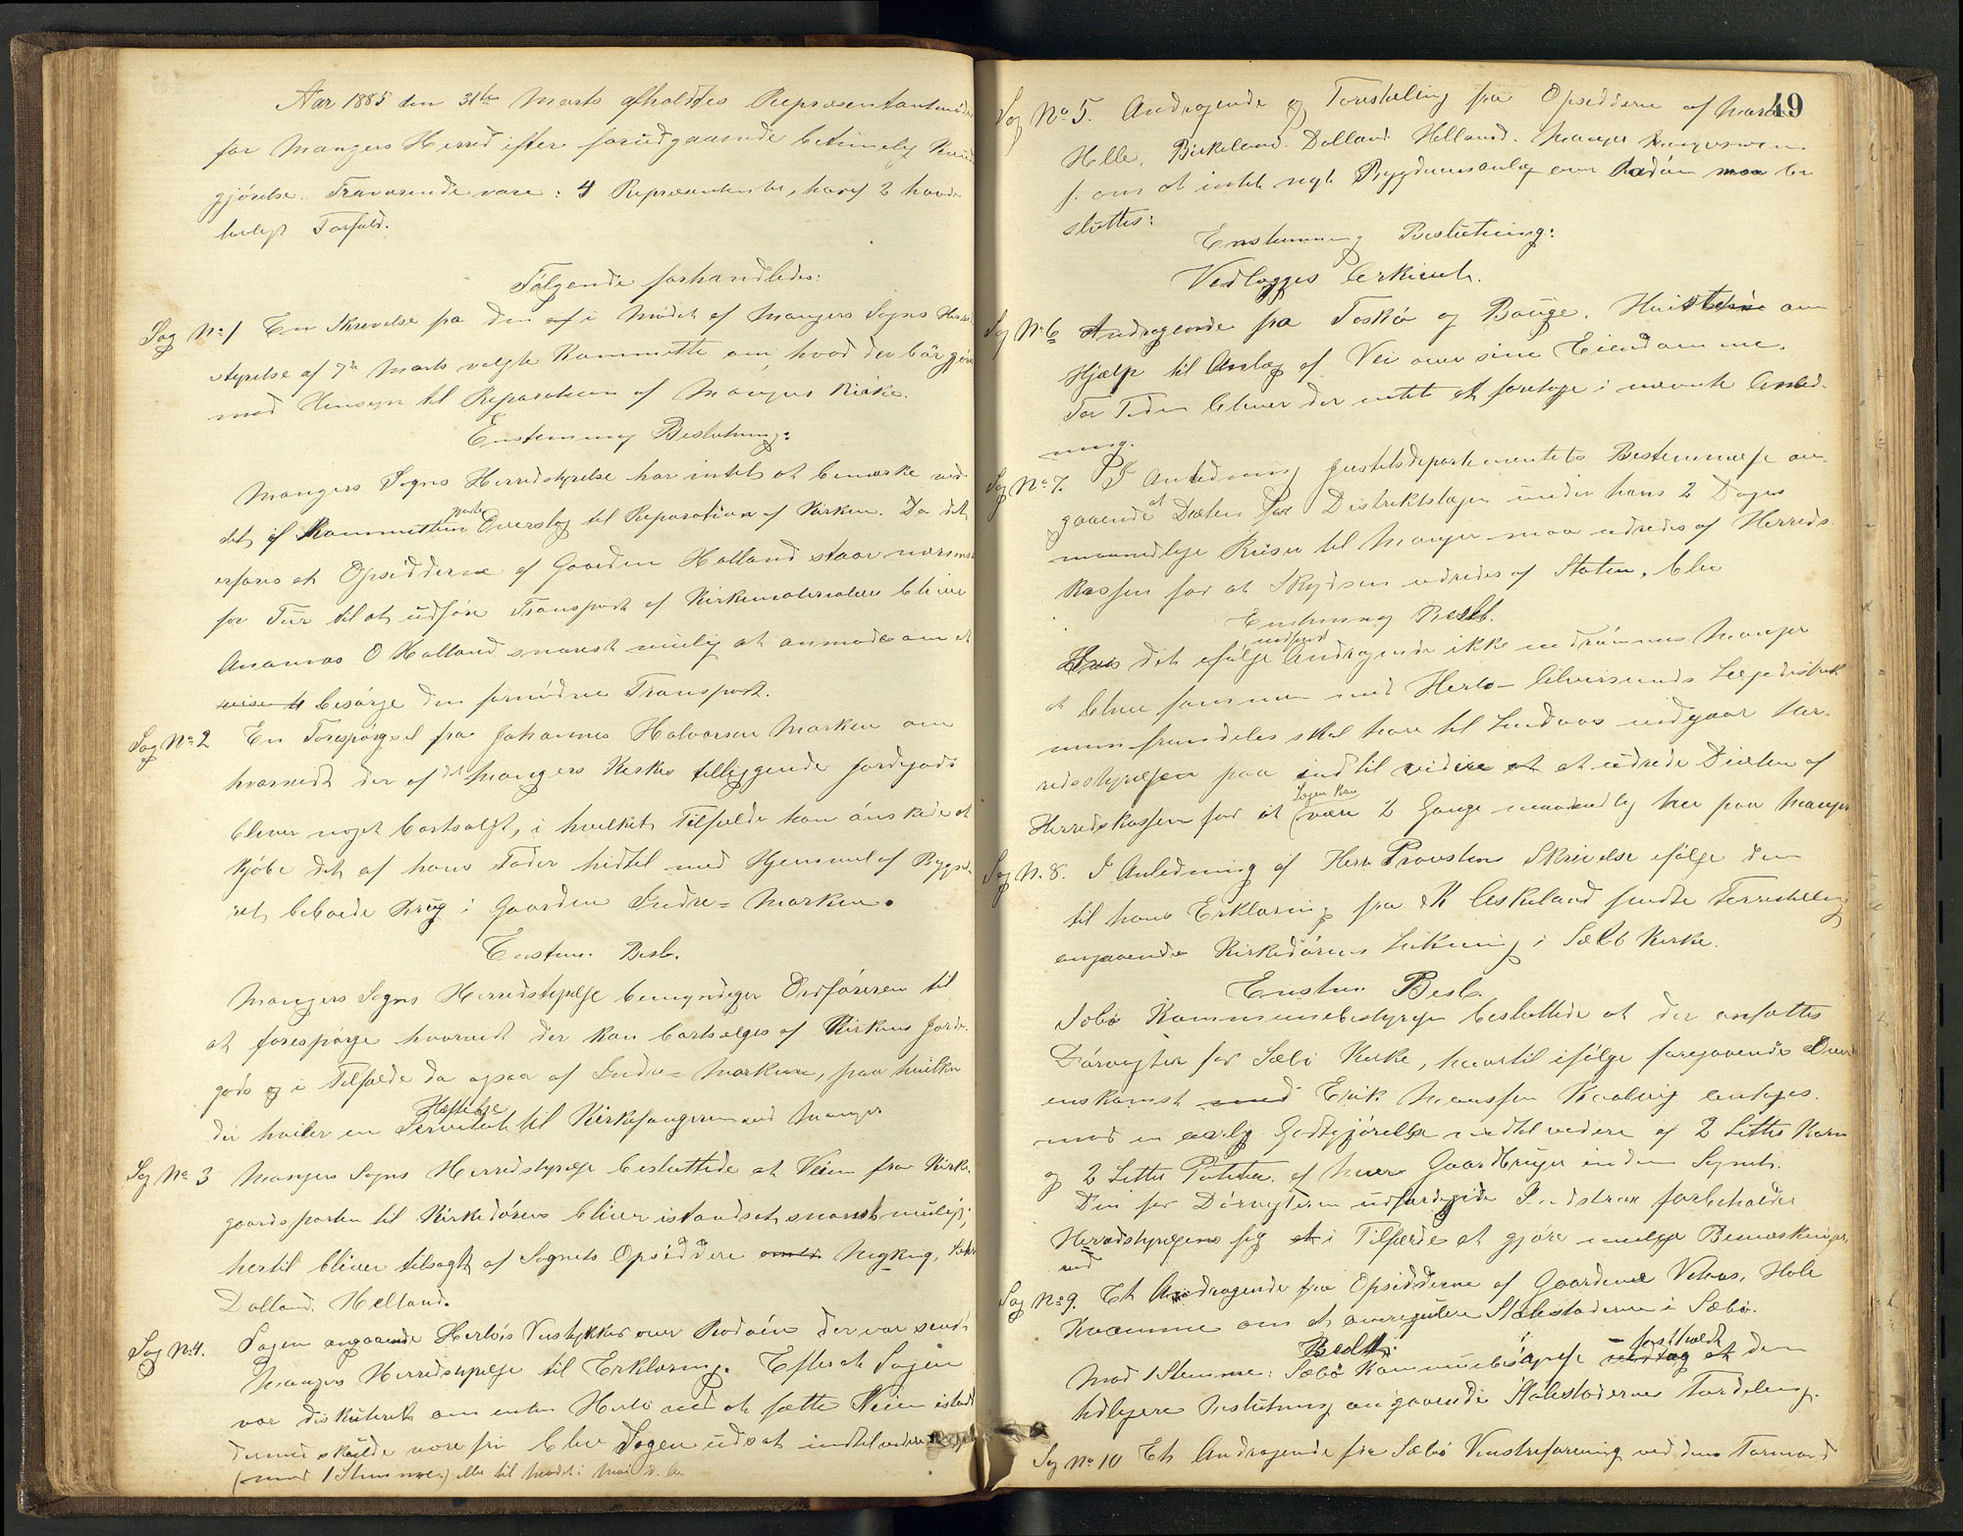 Aar 1885 den 31te Marts afholdtes Repræsentantmöde
for Mangers Herred efter forudgaaende betimelig Kund
gjörelse. Fraværende vare: 4 Repræsentanter, hvoraf 2 havde
lovligt Forfald.
Følgende forhandledes:
Sag No 1 En Skrivelse fra den af i Mödet af Mangers Sogns Herreds
styrelse af 7de Marts valgte Kommitte om hvad der bör gjöres
med Hensyn til Reparation af Mangers Kirke.
Enstemmig Beslutning:
Mangers Sogns Herredstyrelse har intet at bemærke ved
det af Kommitteen Overslag til Reparation af Kirken. Da det
erfares at Opsidderne af Gaarden Halland staar nærmest
for Tur til at udføre Transport af Kirkematerialier bliver
Ananias O Halland snarest mulig at anmode om at
besörge den fornödne Transport.
Sag No 2 En Forespörgsel fra Johannes Halvorsen Marken om
hvorvidt der af det Mangers Kirke tilliggende Jordgods
bliver noget bortsolgt, i hvilket Tilfælde han önskede at
kjöbe det af hans Fader hidtil med Hjemmel af Bygsel
ret beboede Brug i Gaarden Indre=Marken.
Enstem. Besl.
Mangers Sogns Herredstyrelse bemyndiger Ordföreren til
at forespörge hvorvidt der kan bortsælges af Kirkens Jorde
gods og i Tilfælde da ogsaa af Indre=Marken, paa hvilken
Hæftelse
der hviler en Servitut til Kirkesangeren ved Manger
Sag No 3 Mangers Sogns Herredstyrelse besluttede at Veien fra Kirke
gaardsporten til Kirkedören bliver istandsat snarest muligt;
hertil bliver tilsagt af Sognets Opsiddere
Dalland. Helland.
Sag No 4. Sagen angaaende Herlös Veistykker over Radöen der var sendt
Mangers Herredstyrelse til Erklæring. Efterat Sagen
var diskuteret om enten Herlö ved at sætte Veien istand
dermed skulde være fri blev Sagen udsat indtil videre
(mod 1 Stemme) eller til Mödet i Mai d. A.
49
Sag No 5. Andragende og Forestilling fra Opsidderne af
Helle, Birkeland. Dalland Helland. Manger
f. om at intet nyt Rygdeveisanlæg over Radöen maa be
sluttes:
Enstemmig Beslutning:
Vedlægges bekient.
Sag No 6 Andragende fra Toskö og Bauge. om
Hjælp til Anlæg af Vei over sine Eiendomme.
For Tiden bliver der intet at foretage i nævnte Anled-
ning.
Sag No 7. I Anledning Justitsdepartementets Bestemmelse an
gaaende at Diæten for Distriktslægen under hans 2 Dages
maanedlige Reiser til Manger maa udredes af Herreds
kassen for at Skydsen udredes af Staten, blev
Enstemmig Besl.
Hvis det ifølge Andragende ikke indrömmes Manger
at blive sammen med Herlö- Lægedistrikt
men fremdeles skal höre til Lindaas indgaar Her-
redsstyrelsen paa indtil videre at udrede Diæten af
Lægen kan
Herredskassen for at være 2 Gange maanedlig her paa Manger
Sag N. 8. I Anledning af Herr Provstens Skrivelse ifølge den
til hans Erklæring fra K Askeland sendte Forestilling
angaaende Kirkedörens Lukning i Sæbö Kirke.
Enstem Besl.
Sæbö Kommunebestyrelse besluttede at der ansattes
Dörvogter for Sæbö Kirke, hvortil ifølge foregaaende Over
enskomst Erik Monssen Kvalvig antages.
mod en aarlig Godtgjörelse indtil videre af 2 Litter Korn
og 2 Litter Poteter af hver Gaardbruger inden Sognet.
Den for Dörvogteren udfærdigede Instrux forbeholder
Herredstyrelsen sig i Tilfælde at gjöre mulige Bemærkninger
ved
Sag No 9. Et Andragende fra Opsidderne af Gaardene Vetaas, Hole
Kvamme om at omregulere Stolestaderne i Sæbö.
Beslt.
Mod 1 Stemme: Sæbö Kommunebestyrelse fastholdt den
tidligere Beslutning angaaende Stolestadernes Fordeling.
Sag No 10 Et Andragende fra Sæbö Venstreforening ved dens Formand